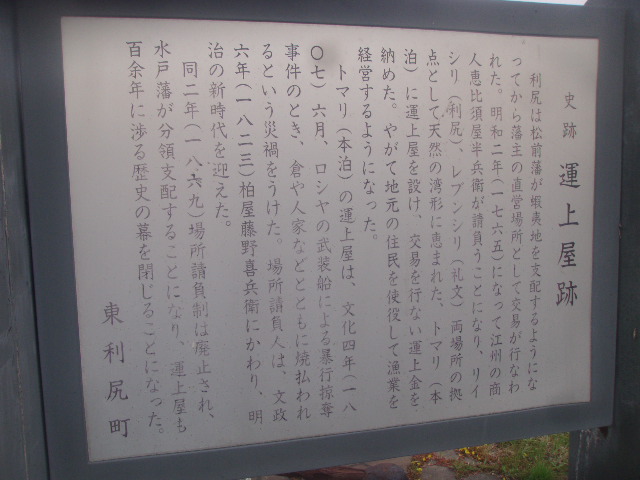 史跡 運上屋跡
利尻は松前藩が蝦夷地を支配するようにな
ってから藩主の直営場所として交易が行なわ
れた。明和二年(一七六五)になって江州の商
人恵比須屋半兵衛が請負うことになり、リイ
シリ(利尻)、レブンシリ(礼文)両場所の拠
点として天然の湾形に恵まれた、トマリ(本
泊)に運上屋を設け、交易を行ない運上金を
納めた。やがて地元の住民を使役して漁業を
経営するようになった。
トマリ(本泊)の運上屋は、文化四年(一八
〇七)六月、ロシヤの武装船による暴行掠奪
事件のとき、倉や人家などとともに焼払われ
るという災禍をうけた。場所請負人は、文政
六年(一八二三)柏屋藤野喜兵衛にかわり、明
治の新時代を迎えた。
同二年(一八六九)場所請負制は廃止され、
水戸藩が分領支配することになり、運上屋も
百余年に渉る歴史の幕を閉じることになった。
東利尻町